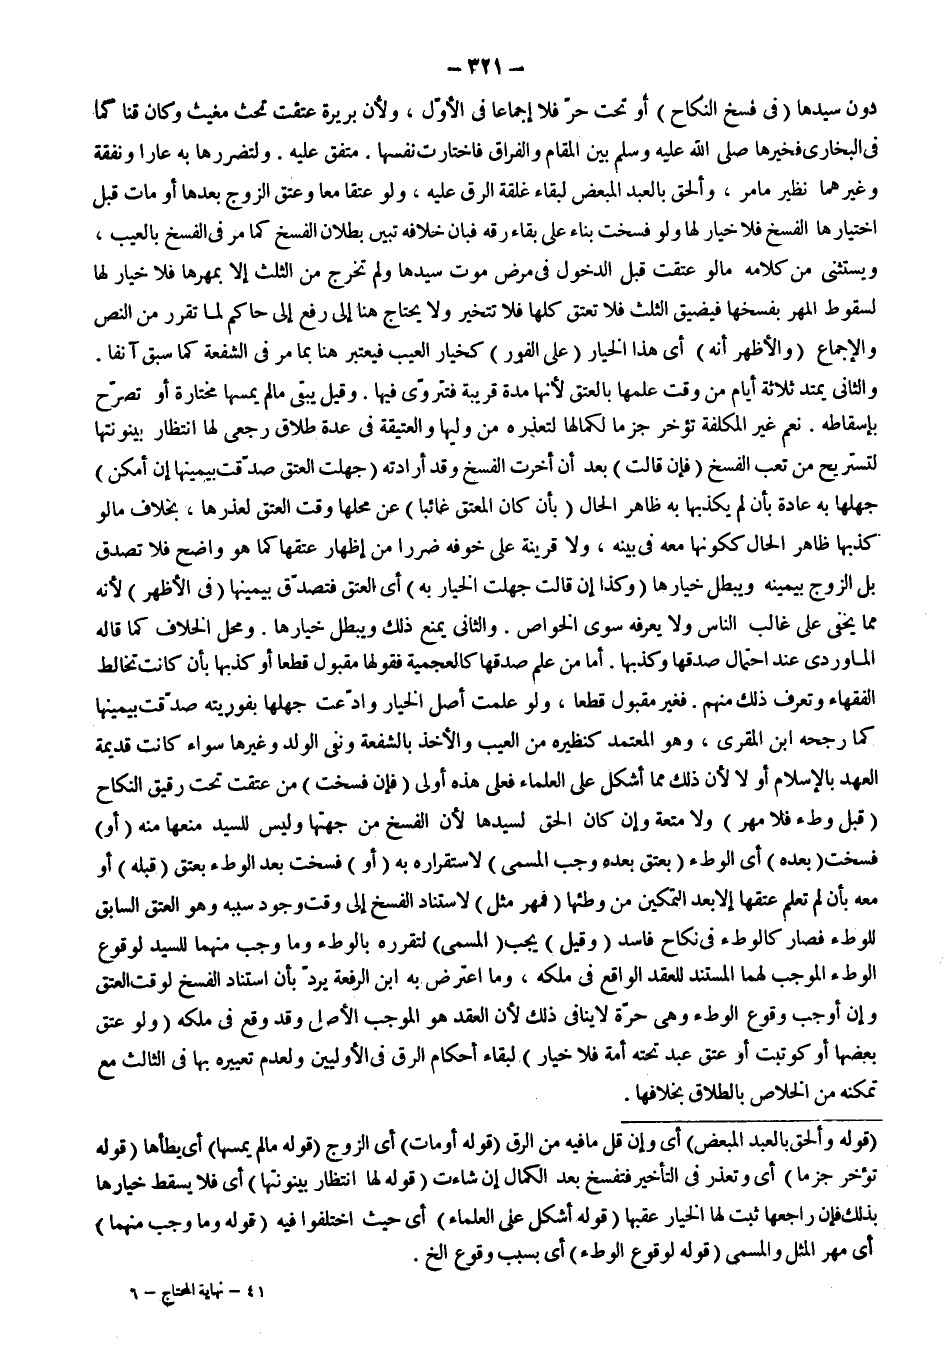 — ٣٢١ —
دون سيدها ( فى فسخ النكاح ) أو تحت حرّ فلا إجماعا فى الأوّل ، ولأن بريرة عتقت تحث مغيث وكان قنا كما
فى البخارى فخيرها صلى الله عليه وسلم بين المقام والفراق فاختارت نفسها . متفق عليه . ولتضررها به عارا ونفقة
وغيرهما نظير مامر ، وألحق بالعبد المبعض لبقاء غلقة الرق عليه ، ولو عتقا معا وعتق الزوج بعدها أو مات قبل
اختيارها الفسخ فلا خيار لها ولو فسخت بناء على بقاء رقه فبان خلافه تبين بطلان الفسخ كما مر فى الفسخ بالعيب ،
ويستثنى من كلامه مالو عتقت قبل الدخول فى مرض موت سيدها ولم تخرج من الثلث إلا بمهرها فلا خيار لها
لسقوط المهر بفسخها فيضيق الثلث فلا تعتق كلها فلا تتخير ولا يحتاج هنا إلى رفع إلى حاكم لما تقرر من النص
والإجماع ( والأظهر أنه ) أى هذا الخيار ( على الفور ) كخيار العيب فيعتبر هنا بما مر فى الشفعة كما سبق آنفا .
والثانى يمتد ثلاثة أيام من وقت علمها بالعتق لأنها مدة قريبة فتتروّى فيها . وقيل يبقى مالم يمسها مختارة أو تصرّح
بإسقاطه . نعم غير المكلفة تؤخر جزما لكمالها لتعذره من وليها والعتيقة فى عدة طلاق رجعى لها انتظار بينونتها
لتستريح من تعب الفسخ ( فإن قالت ) بعد أن أخرت الفسخ وقد أرادته ( جهلت العتق صدّقت بيمينها إن أمكن )
جهلها به عادة بأن لم يكذبها به ظاهر الحال ( بأن كان المعتق غائبا ) عن محلها وقت العتق لعذرها ، بخلاف مالو
كذبها ظاهر الحال ككونها معه فى بيته ، ولا قرينة على خوفه ضررا من إظهار عتقها كما هو واضح فلا تصدق
بل الزوج بيمينه ويبطل خيارها ( وكذا إن قالت جهلت الخيار به ) أى العتق فتصدّق بيمينها ( فى الأظهر ) لأنه
مما يخفى على غالب الناس ولا يعرفه سوى الخواص . والثانى يمنع ذلك ويبطل خيارها . ومحل الخلاف كما قاله
الماوردى عند احتمال صدقها وكذبها . أما من علم صدقها كالعجمية فقولها مقبول قطعا أو كذبها بأن كانت تخالط
الفقهاء وتعرف ذلك منهم . فغير مقبول قطعا ، ولو علمت أصل الخيار وادّعت جهلها بفوريته صدّقت بيمينها
كما رجحه ابن المقرى ، وهو المعتمد كنظيره من العيب والأخذ بالشفعة ونفى الولد وغيرها سواء كانت قديمة
العهد بالإسلام أو لا لأن ذلك مما أشكل على العلماء فعلى هذه أولى ( فإن فسخت ) من عتقت تحت رقيق النكاح
( قبل وطء فلا مهر ) ولا متعة وإن كان الحق لسيدها لأن الفسخ من جهتها وليس للسيد منعها منه ( أو )
فسخت( بعده ) أى الوطء ( بعتق بعده وجب المسمى ) لاستقراره به ( أو ) فسخت بعد الوطء بعتق ( قبله ) أو
معه بأن لم تعلم عتقها إلا بعد التمكين من وطئها ( فمهر مثل ) لاستناد الفسخ إلى وقت وجود سببه وهو العتق السابق
للوطء فصار كالوطء فى نكاح فاسد ( وقيل ) يجب( المسمى) لتقرره بالوطء وما وجب منهما للسيد لوقوع
الوطء الموجب لهما المستند للعقد الواقع فى ملكه ، وما اعترض به ابن الرفعة يردّ بأن استناد الفسخ لوقت العتق
وإن أوجب وقوع الوطء وهى حرّة لاينافى ذلك لأن العقد هو الموجب الأصلى وقد وقع فى ملكه ( ولو عتق
بعضها أو كوتبت أو عتق عبد تحته أمة فلا خيار ) لبقاء أحكام الرق فى الأوليين ولعدم تعييره بها فى الثالث مع
تمكنه من الخلاص بالطلاق بخلافها .
(قوله وألحق بالعبد المبعض) أى وإن قل مافيه من الرق (قوله أومات) أى الزوج (قوله مالم يمسها) أى يطأها ( قوله
تؤخر جزما ) أى وتعذر فى التأخير فتفسخ بعد الكمال إن شاءت ( قوله لها انتظار بينونتها ) أى فلا يسقط خيارها
بذلك فإن راجعها ثبت لها الخيار عقبها ( قوله أشكل على العلماء ) أى حيث اختلفوا فيه ( قوله وما وجب منهما )
أى مهر المثل والمسمى ( قوله لوقوع الوطء ) أى بسبب وقوع الخ .
٤١ – نهاية المحتاج – ٦